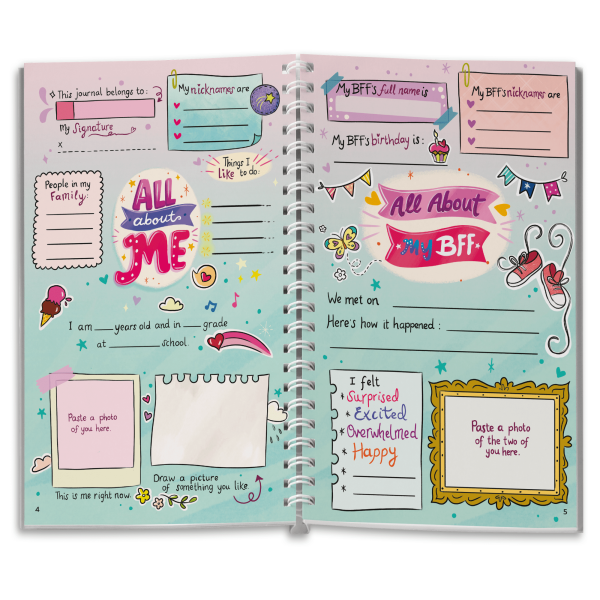 This journal belongs to:
My signature
x
My nicknames are
Things I
Like to do:
People in my
Family:
ALL
about
ME
I am ___ years old and in ___ grade
at ___ school.
Paste a photo
of you here.
This is me right now.
Draw a picture
of something you like.
4
My BFF's full name is
My BFF's nicknames are
My BFF's birthday is:
All About
My BFF
We met on
Here's how it happened:
I felt
Surprised
Excited
Overwhelmed
Happy
Paste a photo
of the two of
you here.
5